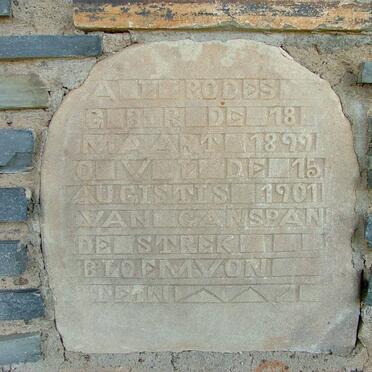 A P RODES
GBOR DE 18
MAART 1899
OVL DE 15
AUGISTIS 1901
VAN CANSPAN
DE STREK
BLOEMVON
TEIN